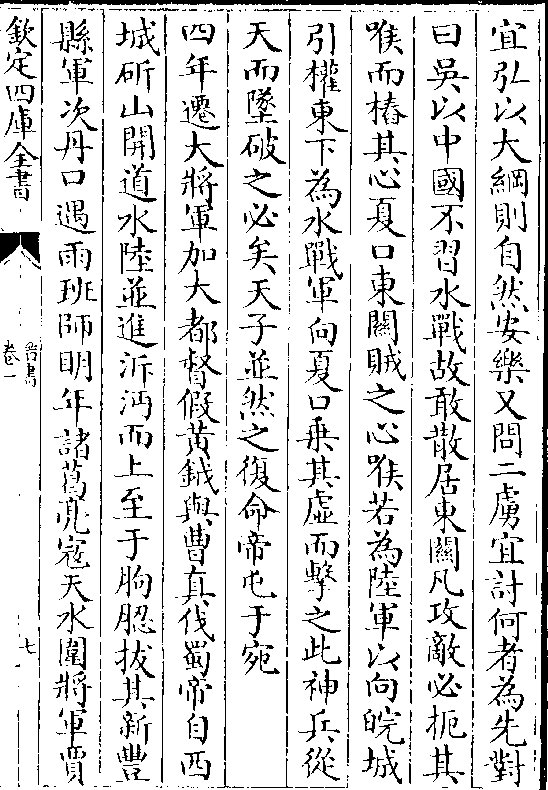 宜弘以大綱則自然安樂又問二虜宜討何者為先對
曰吳以中國不習水戰故敢散居東關凡攻敵必扼其
喉而樁其心夏口東關賊之心喉若為陸軍以向皖城
引權東下為水戰軍向夏口乗其虛而擊之此神兵從
天而墜破之必矣天子並然之復命帝屯于宛
四年遷大將軍加大都督假黃鉞與曹真伐蜀帝自西
城斫山開道水陸並進泝沔而上至于朐䏰拔其新豐
縣軍次丹口遇雨班師明年諸葛亮寇天水圍將軍賈
欽定四庫全書
晉書
卷一
七